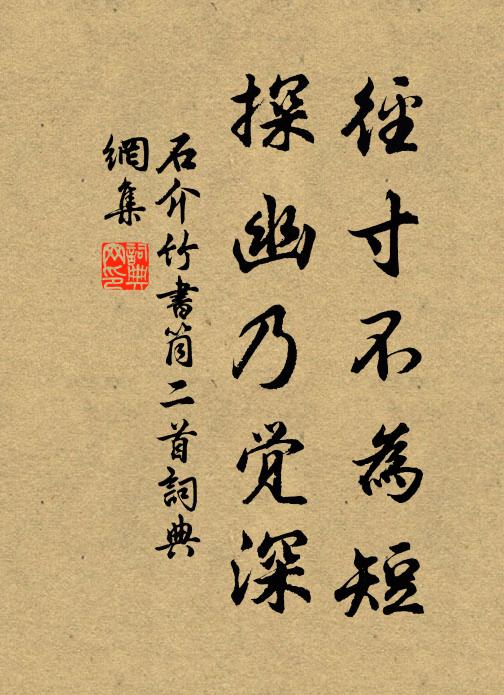 徑寸不為短
探幽乃覺深
石介竹書筒二首詞典
網集
詞典網印